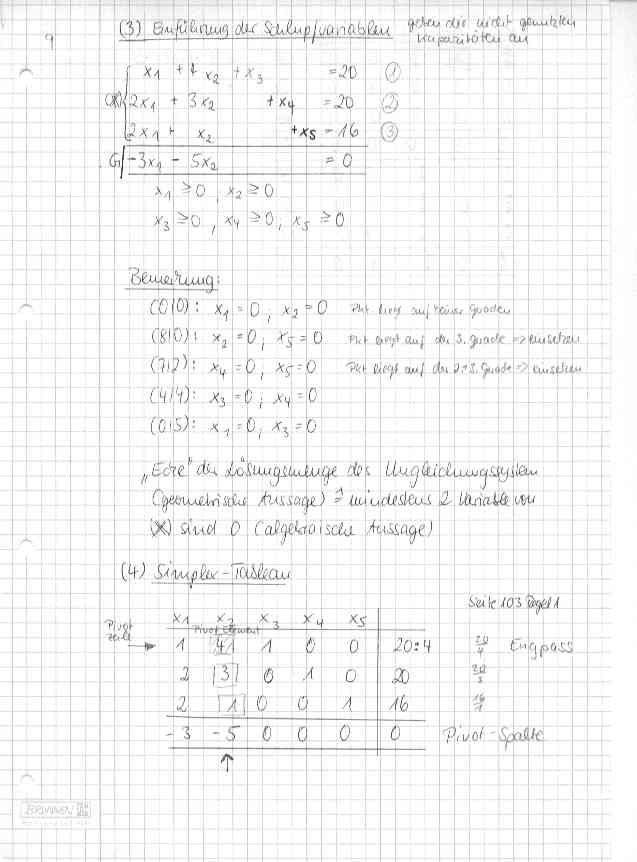 9
(3) Einführung der Schlupfvariablen geben die nicht genutzten
Kapazitäten an
x1 + 4 x2 + x3 = 20 ①
(*) 2x1 + 3x2 + x4 = 20 ②
2x1 + x2 + x5 = 16 ③
G -3x1 - 5x2 = 0
x1 ≥ 0, x2 ≥ 0
x3 ≥ 0, x4 ≥ 0, x5 ≥ 0
Bemerkung:
(0|0): x1 = 0, x2 = 0 Pkt liegt auf keiner Graden
(8|0): x2 = 0, x5 = 0 Pkt liegt auf der 3. Grade => einsetzen
(7|2): x4 = 0, x5 = 0 Pkt liegt auf der 2+3. Grade => einsetzen
(4|4): x3 = 0, x4 = 0
(0|5): x1 = 0, x3 = 0
„Ecke" der Lösungsmenge des Ungleichungssystem
(geometrische Aussage) ≙ mindestens 2 Variable von
(*) sind 0 (algebraische Aussage)
(4) Simplex-Tableau
Seite 103 Regel 1
x1 x2 x3 x4 x5
Pivot zeile
Pivot Element
1 4 1 0 0 20:4 20/4 Engpass
2 3 0 1 0 20 20/3
2 1 0 0 1 16 16/1
-3 -5 0 0 0 0 Pivot-Spalte
↑
BRUNNEN